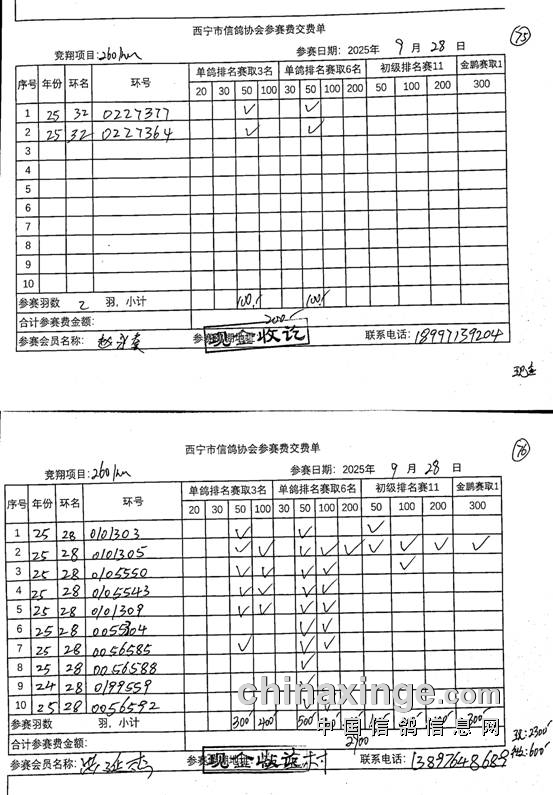 西宁市信鸽协会参赛费交费单
75
竞翔项目:260km 参赛日期:2025年 9 月 28 日
序号 年份 环名 环号 单鸽排名赛取3名 单鸽排名赛取6名 初级排名赛11 金鹏赛取1
20 30 50 100 30 50 100 200 50 100 200 300
1 25 32 0227377 ✓ ✓
2 25 32 0227364 ✓ ✓
3
4
5
6
7
8
9
10
参赛羽数 2 羽，小计 100 100
合计参赛费金额: 200
参赛会员名称: 现金收讫 联系电话: 18997139204
西宁市信鸽协会参赛费交费单
76
竞翔项目:260km 参赛日期:2025年 9 月 28 日
序号 年份 环名 环号 单鸽排名赛取3名 单鸽排名赛取6名 初级排名赛11 金鹏赛取1
20 30 50 100 30 50 100 200 50 100 200 300
1 25 28 0101303 ✓ ✓ ✓
2 25 28 0101305 ✓ ✓ ✓ ✓ ✓ ✓ ✓ ✓ ✓
3 25 28 0105550 ✓ ✓ ✓ ✓ ✓
4 25 28 0105543 ✓ ✓ ✓ ✓
5 25 28 0101309 ✓ ✓ ✓ ✓
6 25 28 ✓ ✓
7 25 28 0056585 ✓ ✓ ✓
8 25 28 0056588 ✓
9 24 28 0199559 ✓
10 25 28 0056592 ✓
chinaxinge.com
参赛羽数 羽，小计 300 400 500 300
中国信鸽信息网
合计参赛费金额: 2900
现:2300
600
参赛会员名称: 现金收讫 联系电话: